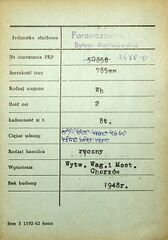 Jednostka służbowa Parowozownia
Bytom
Nr inwentarza PKP 50858 2478-D
Szerokość toru 785mm
Rodzaj wagonu Wh
Ilość osi 2
Ładowność w t. 8t.
Ciężar własny 4640
Rodzaj hamulca ręczny
Wytwórnia Wytw. Wag. i Most.
Chorzów
Rok budowy 1948r.